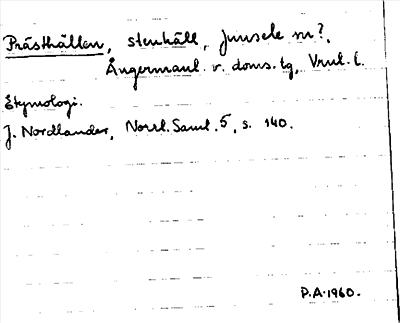 Prästhällen, stenhäll, Junsele sn?,
Ångermanl. v. doms. tg, Vnrl. l.
Etymologi.
J. Nordlander, Norrl. Saml. 5, s. 140.
P.A. 1960.